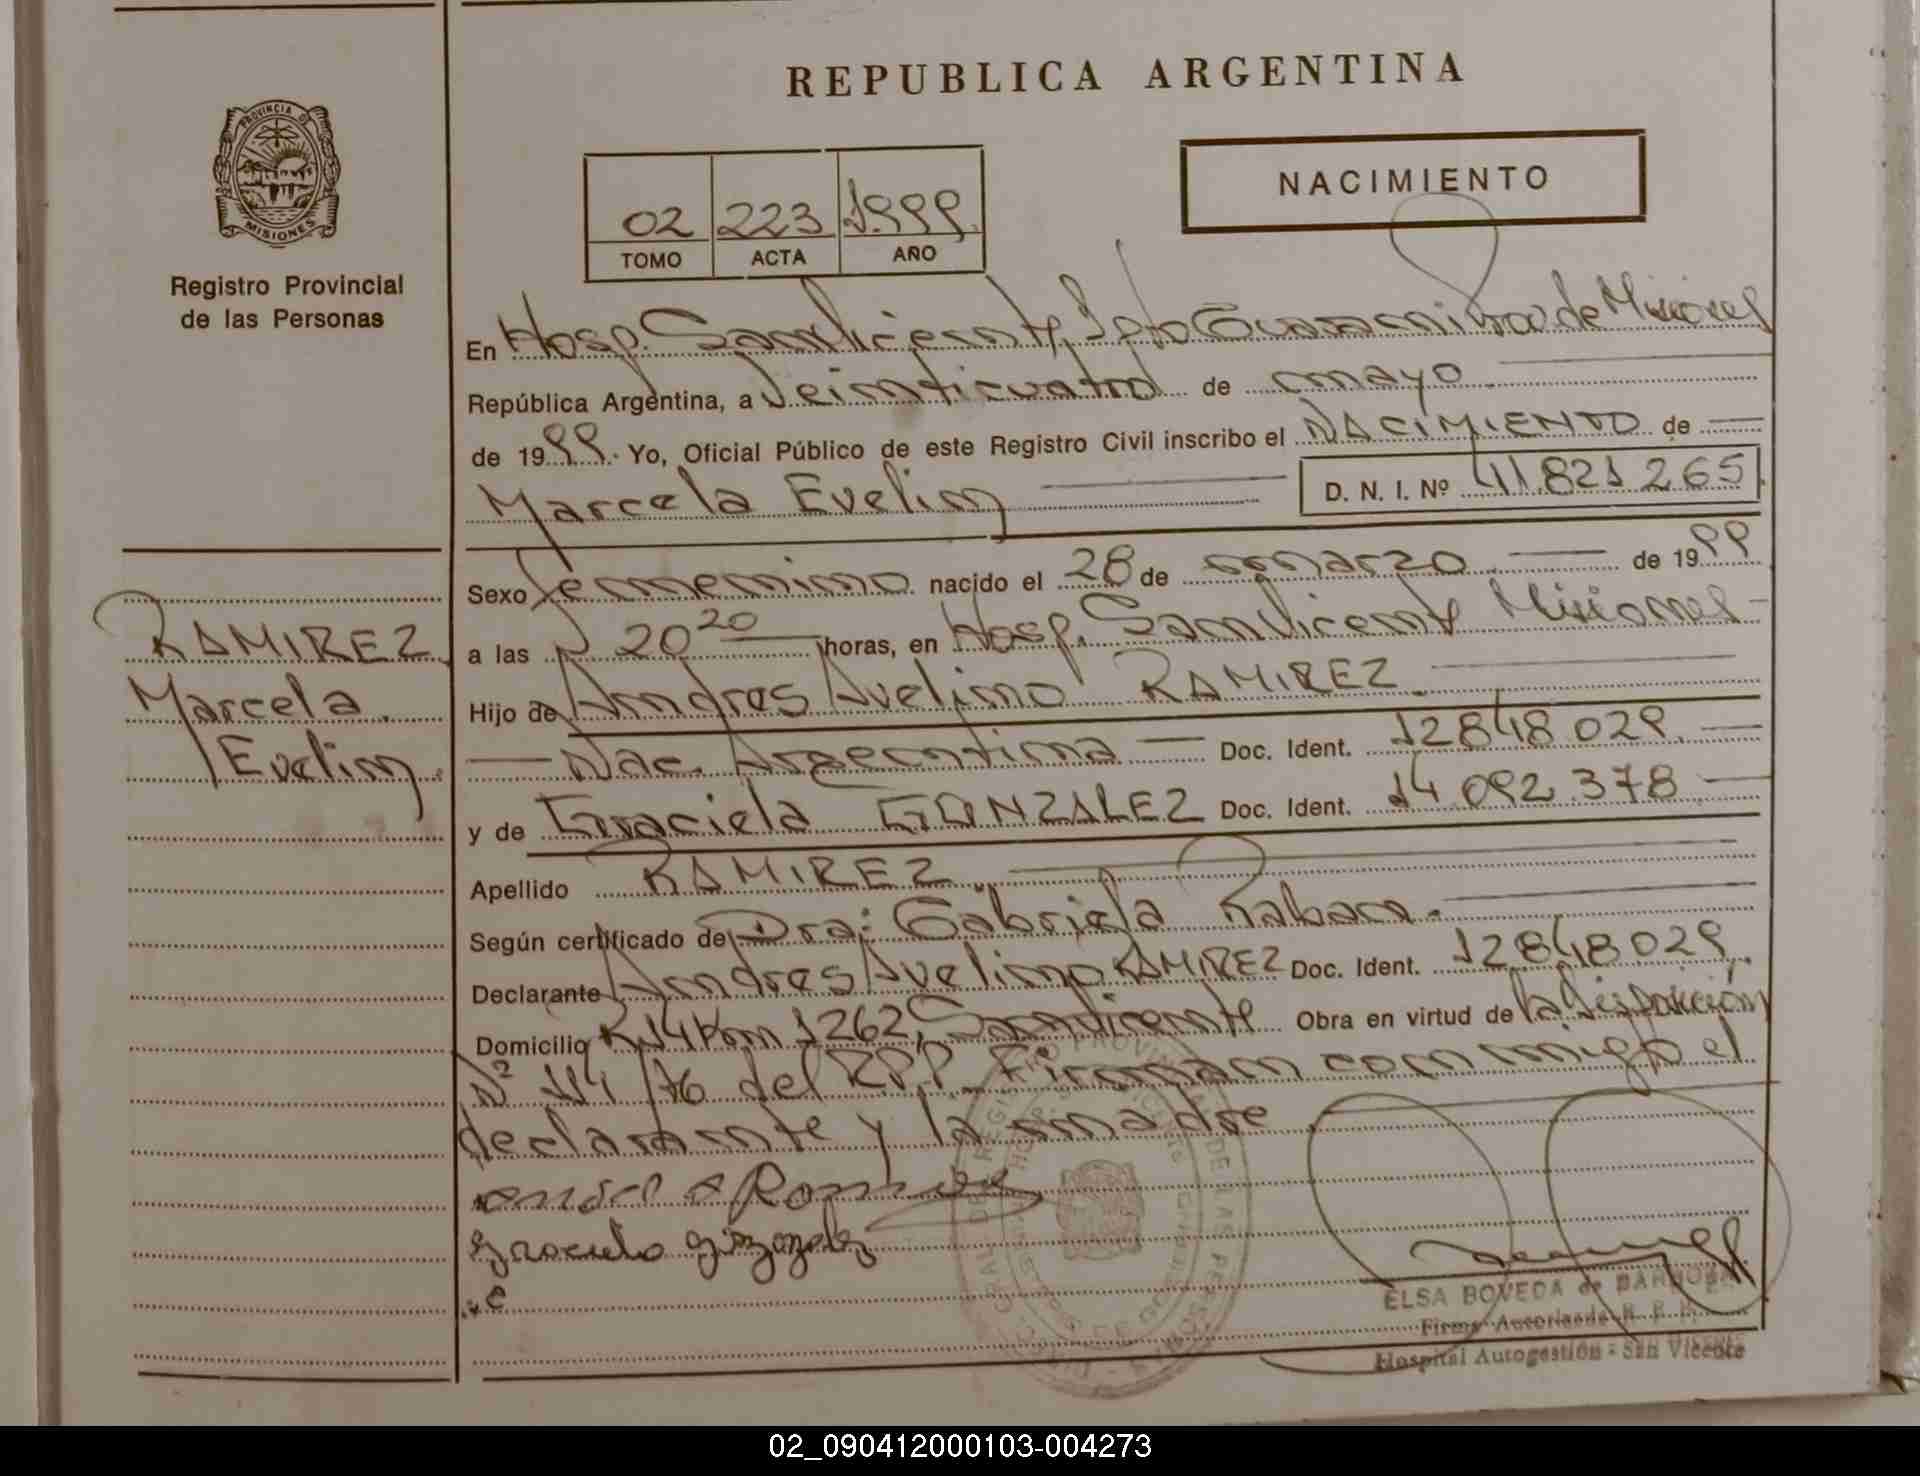 REPUBLICA ARGENTINA
PROVINCIA DE
MISIONES
Registro Provincial
de las Personas
NACIMIENTO
02 223 1.999.
TOMO ACTA AÑO
En Hosp. San Vicente, Dpto Guaraní Prov de Misiones
República Argentina, a Veinticuatro de mayo
de 1999. Yo, Oficial Público de este Registro Civil inscribo el NACIMIENTO de
Marcela Evelin D. N. I. Nº 41.821.265
Sexo femenino nacido el 28 de marzo de 1999
a las 20 20 horas, en Hosp. San Vicente Misiones
Hijo de Andres Avelino RAMIREZ
Nac. Argentina Doc. Ident. 12848029.
y de Graciela GONZALEZ Doc. Ident. 14.092.378
Apellido RAMIREZ
Según certificado de Dra: Gabriela Raban.
Declarante Andres Avelino RAMIREZ Doc. Ident. 12848029.
Domicilio R14 Km 1262, San Vicente Obra en virtud de la Disposición
Nº 114/76 del RPP. Firman conmigo el
declarante y la madre
RAMIREZ
Marcela
Evelin.
ELSA BOVEDA de BARBOZA
Firma Autorizada R. P. P.
Hospital Autogestión - San Vicente
02_090412000103-004273